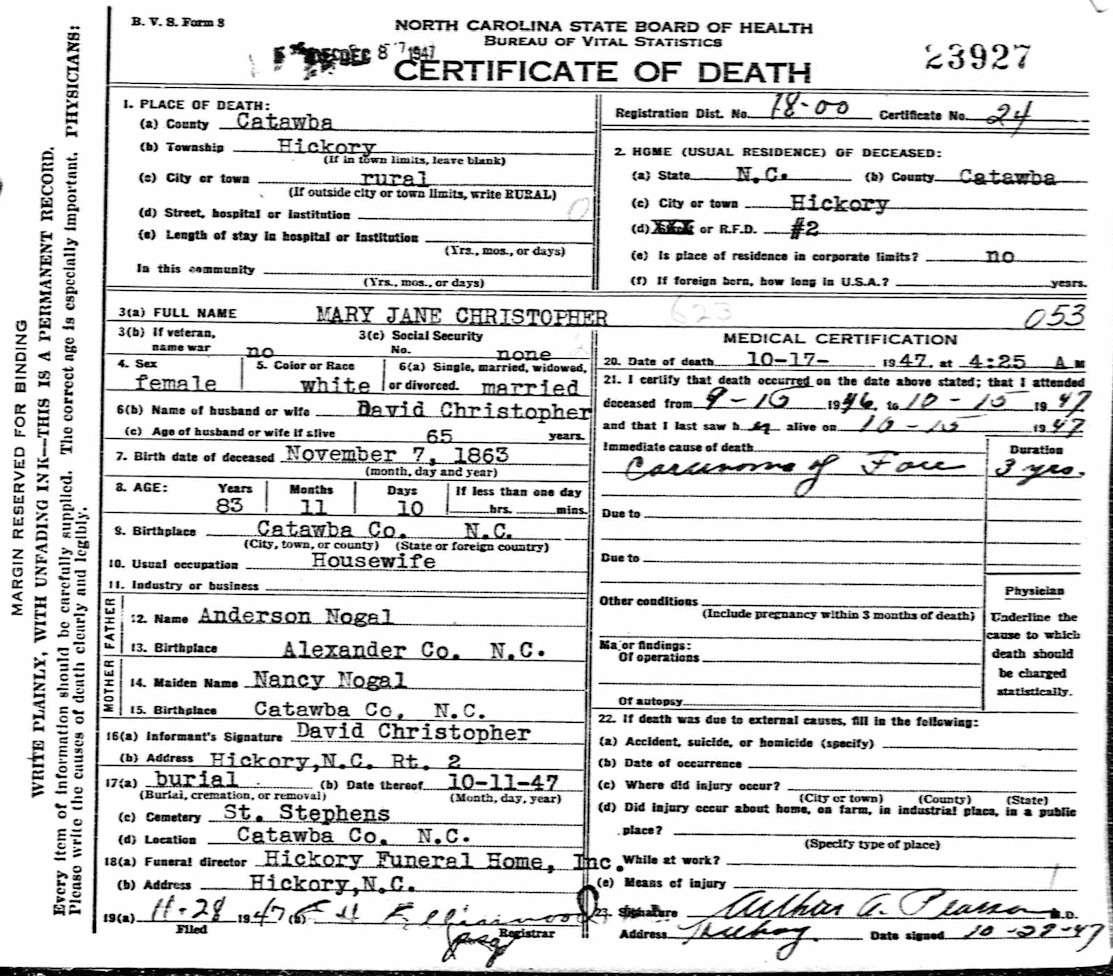 B. V. S. Form 8
NORTH CAROLINA STATE BOARD OF HEALTH
BUREAU OF VITAL STATISTICS
DEC 8 1947
23927
CERTIFICATE OF DEATH
MARGIN RESERVED FOR BINDING
WRITE PLAINLY, WITH UNFADING INK—THIS IS A PERMANENT RECORD.
Every item of information should be carefully supplied. The correct age is especially important. PHYSICIANS:
Please write the causes of death clearly and legibly.
1. PLACE OF DEATH:
(a) County Catawba
(b) Township Hickory
(If in town limits, leave blank)
(c) City or town rural
(If outside city or town limits, write RURAL)
(d) Street, hospital or institution 0
(e) Length of stay in hospital or institution
(Yrs., mos., or days)
In this community
(Yrs., mos., or days)
Registration Dist. No. 18-00 Certificate No. 24
2. HOME (USUAL RESIDENCE) OF DECEASED:
(a) State N.C. (b) County Catawba
(c) City or town Hickory
(d) XXX or R.F.D. #2
(e) Is place of residence in corporate limits? no
(f) If foreign born, how long in U.S.A.? years.
3(a) FULL NAME MARY JANE CHRISTOPHER 623 053
3(b) If veteran, name war no 3(c) Social Security No. none
4. Sex female 5. Color or Race white 6(a) Single, married, widowed, or divorced. married
6(b) Name of husband or wife David Christopher
(c) Age of husband or wife if alive 65 years.
7. Birth date of deceased November 7, 1863
(month, day and year)
8. AGE: Years 83 Months 11 Days 10 If less than one day hrs. mins.
9. Birthplace Catawba Co. N.C.
(City, town, or county) (State or foreign country)
10. Usual occupation Housewife
11. Industry or business
FATHER
12. Name Anderson Nogal
13. Birthplace Alexander Co. N.C.
MOTHER
14. Maiden Name Nancy Nogal
15. Birthplace Catawba Co, N.C.
16(a) Informant's Signature David Christopher
(b) Address Hickory,N.C. Rt. 2
17(a) burial (b) Date thereof 10-11-47
(Burial, cremation, or removal) (Month, day, year)
(c) Cemetery St. Stephens
(d) Location Catawba Co. N.C.
18(a) Funeral director Hickory Funeral Home, Inc.
(b) Address Hickory,N.C.
19(a) 11-28 1947 (b)
Filed Registrar
MEDICAL CERTIFICATION
20. Date of death 10-17- 1947, at 4:25 A M
21. I certify that death occurred on the date above stated; that I attended
deceased from 9-16 1946, to 10-15 1947
and that I last saw her alive on 10-15 1947
Immediate cause of death Duration
Carcinoma of Face 3 yrs.
Due to
Due to
Other conditions
(Include pregnancy within 3 months of death)
Major findings:
Of operations
Of autopsy
Physician
Underline the
cause to which
death should
be charged
statistically.
22. If death was due to external causes, fill in the following:
(a) Accident, suicide, or homicide (specify)
(b) Date of occurrence
(c) Where did injury occur?
(City or town) (County) (State)
(d) Did injury occur about home, on farm, in industrial place, in a public
place?
(Specify type of place)
While at work?
(e) Means of injury
23. Signature Arthur A. Pearson M.D.
Address Hickory. Date signed 10-28-47